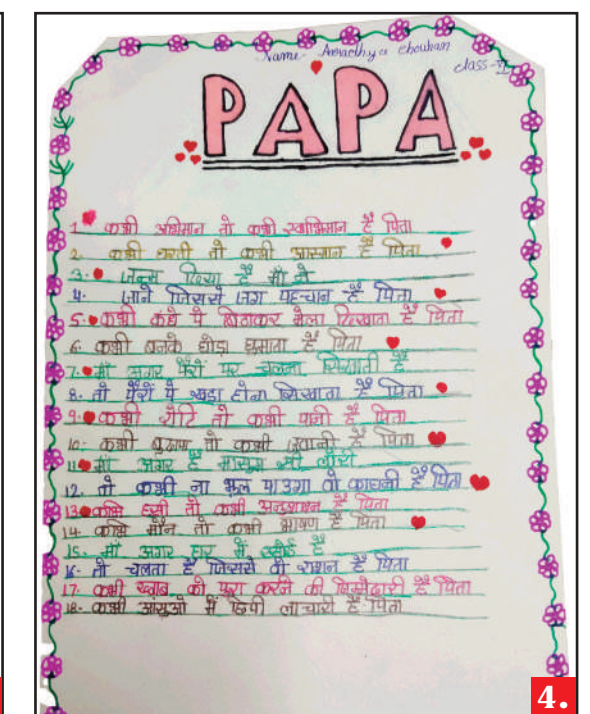 Name- Aaradhya chouhan
class-VI
PAPA
1. कभी अभिमान तो कभी स्वाभिमान है पिता
2. कभी धरती तो कभी आसमान है पिता
3. जन्म दिया है माँ ने
4. जाने जिससे जग पहचान है पिता
5. कभी कंधे पे बिठाकर मेला दिखाता है पिता
6. कभी बनके घोड़ा घुमाता है पिता
7. माँ अगर पैरों पर चलना सिखाती है
8. तो पैरों पे खड़ा होना सिखाता है पिता
9. कभी रोटि तो कभी पानी है पिता
10. कभी तो कभी जवानी है पिता
11. माँ अगर है मासूम सी लोरी
12. तो कभी ना भूल पाउगा वो काहनी है पिता
13. कभि हसी तो कभी अनुशासन है पिता
14. कभि मौन तो कभी भाषण है पिता
15. माँ अगर घर में रसोई है
16. तो चलता है जिससे वो राशन है पिता
17. कभी ख्वाब को पुरा करने की जिम्मेदारी है पिता
18. कभी आंसुओ में छिपी लाचारी है पिता
4.